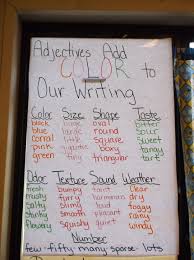 Adjectives Add
COLOR to
Our Writing
Color Size Shape Taste
black huge oval bitter
blue large round sour
coral little square sweet
pink petite boxy tart
green tiny triangular tangy
Odor Texture Sound Weather
fresh bumpy faint clear
musty fuzzy harmonious dry
salty slimy loud foggy
stinky fluffy pleasant rainy
smoky squishy quiet windy
Number
few - fifty many sparse - lots